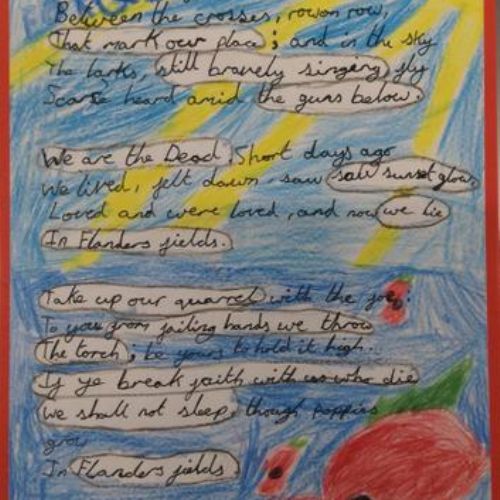 Between the crosses, row on row,
That mark our place; and in the sky
The larks, still bravely singing fly
Scarce heard amid the guns below.
We are the Dead. Short days ago
We lived, felt dawn, saw saw sunset glow,
Loved and were loved, and now we lie
In Flanders fields.
Take up our quarrel with the foe:
To you from failing hands we throw
The torch; be yours to hold it high.
If ye break faith with us who die
We shall not sleep, though poppies
grow
In Flanders fields.